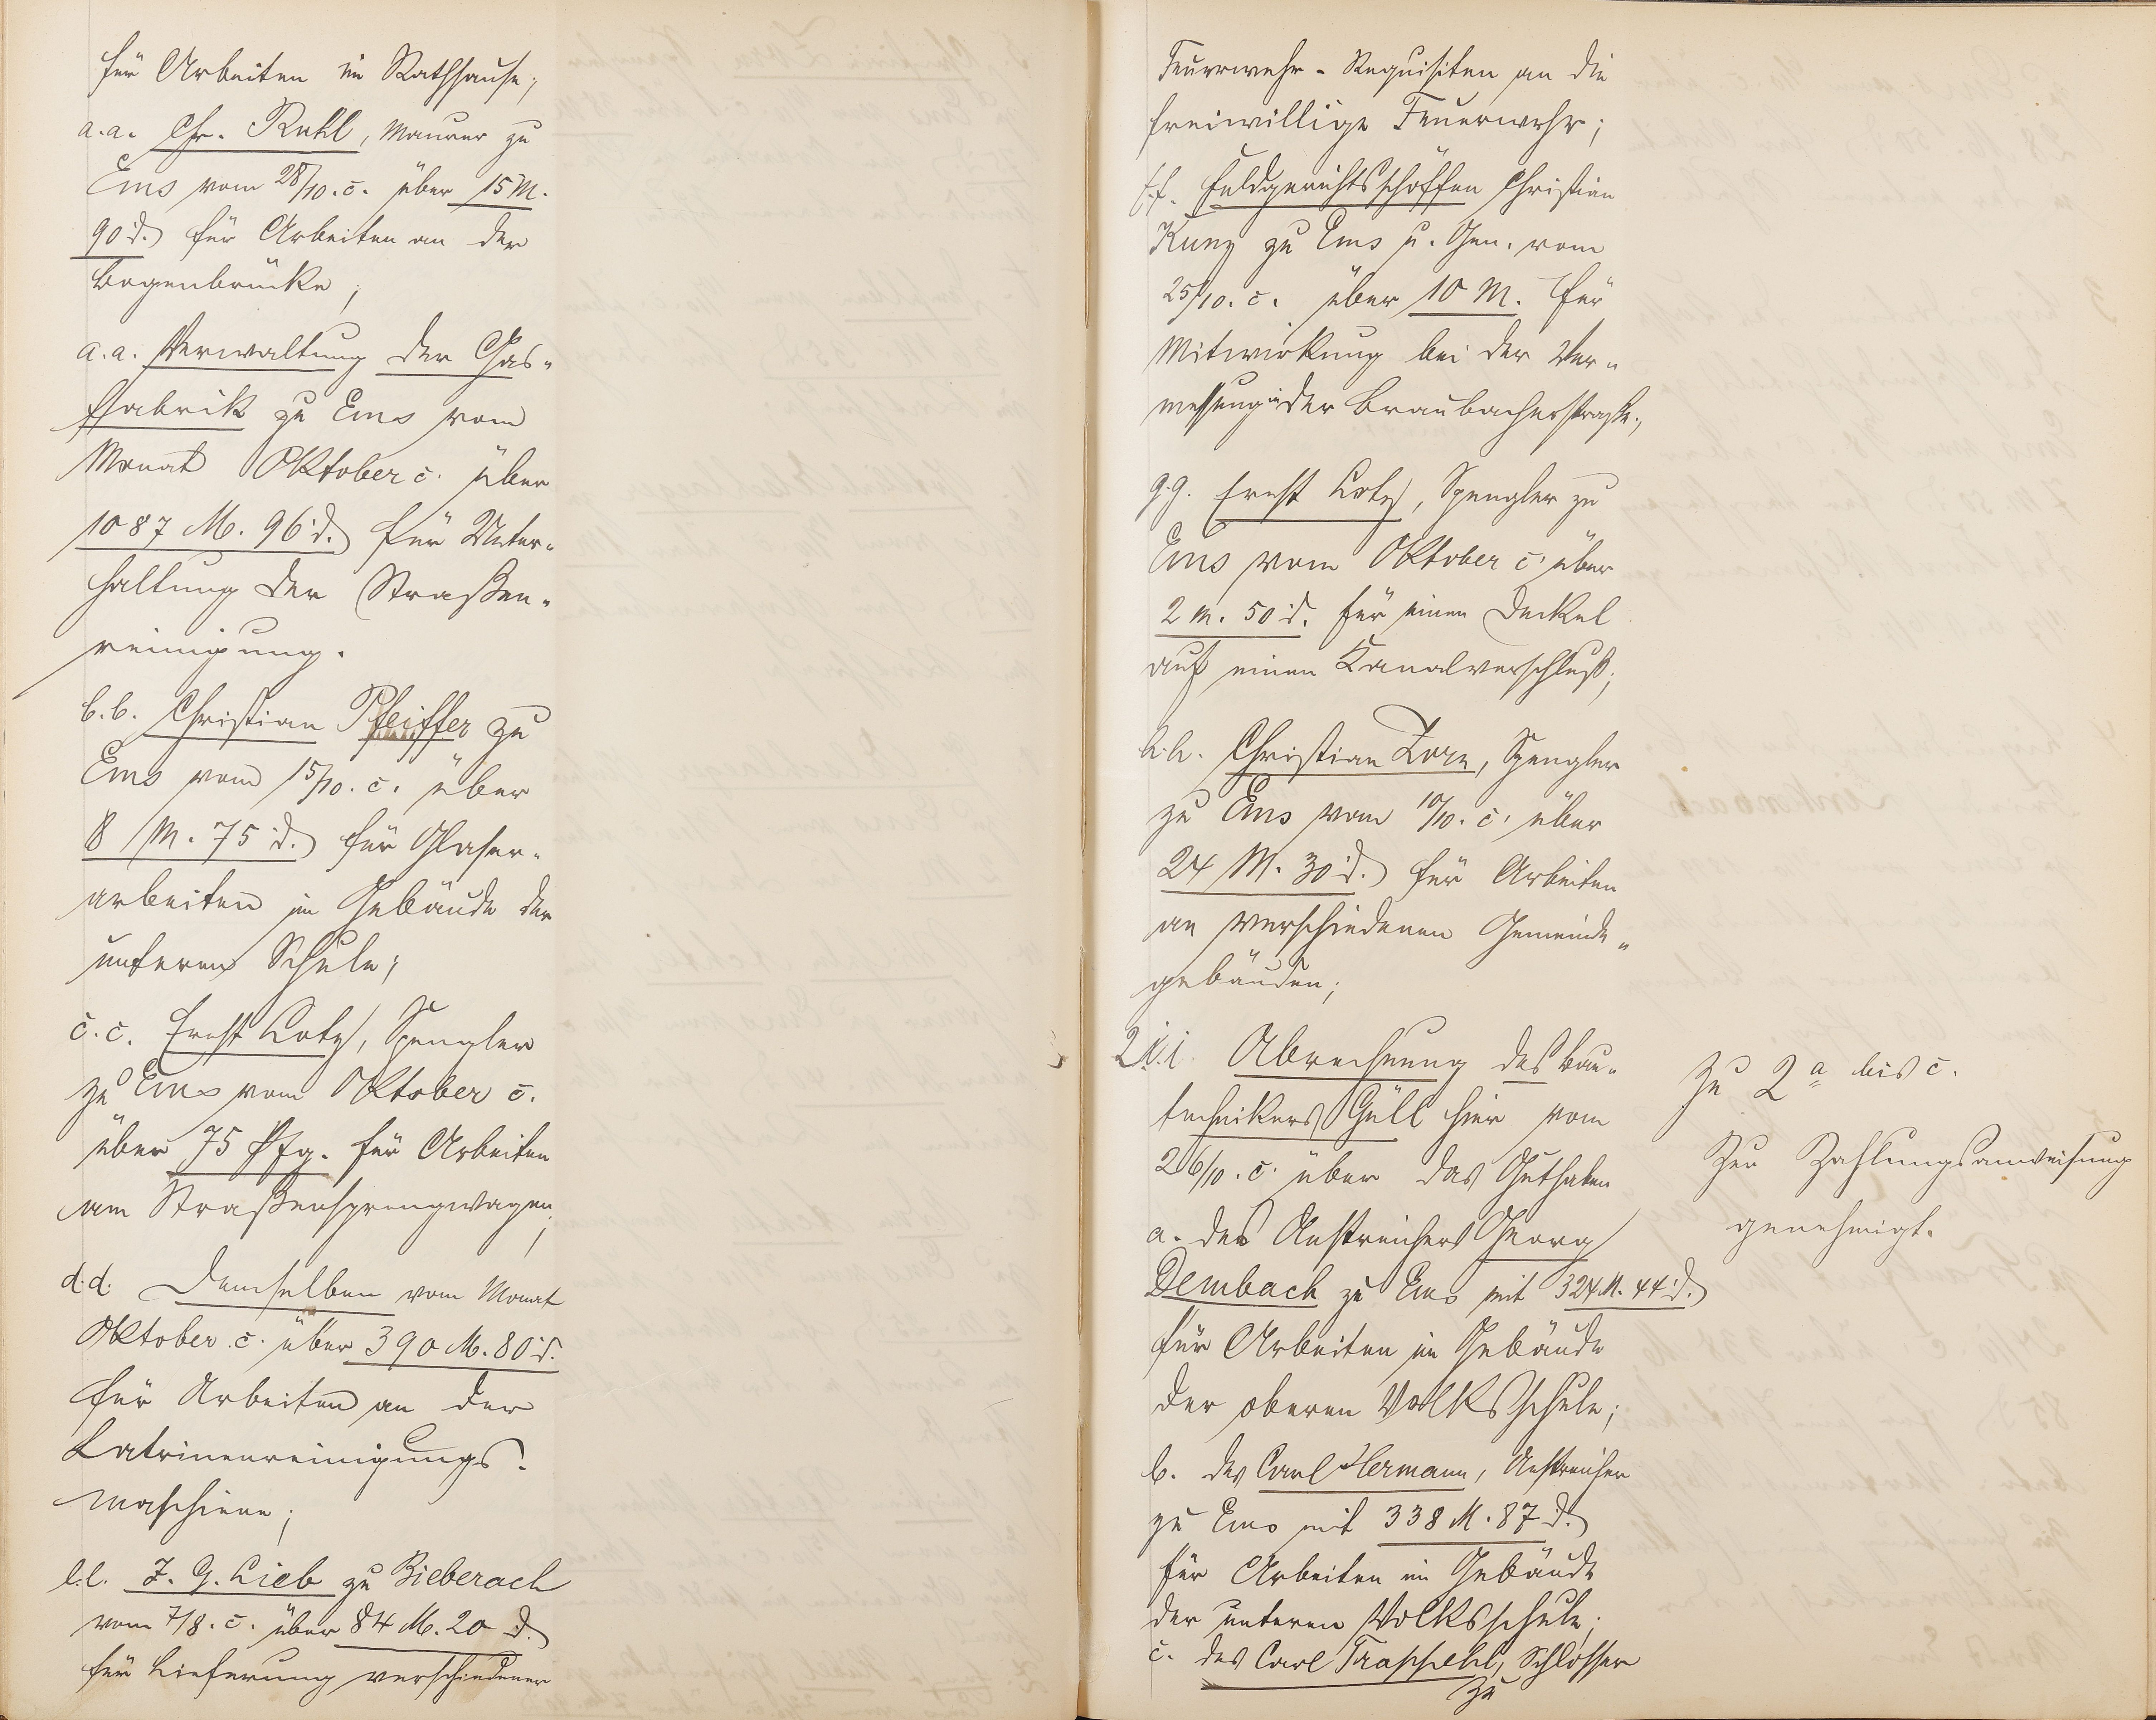 für Arbeiten im Rathhause;
a.a. Chr. Ruhl, Maurer zu
Ems vom 28/10. c. über 15 M.
90 d. für Arbeiten an der
Bogenbrücke;
a.a. Verwaltung der Gas-
fabrik zu Ems vom
Monat Oktober c. über
1087 M. 96 d. für Unter-
haltung der Straßen-
reinigung.
b.b. Christian Pfeiffer zu
Ems vom 15/10. c. über
8 M. 75 d. für Glaser-
arbeiten im Gebäude der
unteren Schule;
c.c. Ernst Loty, Spengler
zu Ems vom Oktober c.
über 75 Pfg. für Arbeiten
am Straßensprengwagen;
d.d. Demselben vom Monat
Oktober c. über 390 M. 80 d.
für Arbeiten an der
Latrinenreinigungs-
maschine;
e.e. J. G. Lieb zu Bieberach
vom 7/8. c. über 84 M. 20 d.
für Lieferung verschiedener
Feuerwehr-Requisiten an die
freiwillige Feuerwehr;
f.f. Feldgerichtsschöffen Christian
Kunz zu Ems u. Gen. vom
25/10. c. über 10 M. für
Mitwirkung bei der Ver-
messung in der Braubacherstraße;
g.g. Ernst Loty, Spengler zu
Ems vom Oktober c. über
2 M. 50 d. für einen Deckel
auf einen Kanalverschluß;
h.h. Christian Zorn, Spengler
zu Ems vom 10/10. c. über
24 M. 30 d. für Arbeiten
an verschiedenen Gemeinde-
gebäuden;
2 i.i. Abrechnung des Bau-
technikers Güll hier vom
26/10. c. über das Guthaben
a. des Anstreichers Georg
Dembach zu Ems mit 324 M. 44 d.
für Arbeiten im Gebäude
der oberen Volksschule;
b. des Carl Hermann, Anstreicher
zu Ems mit 338 M. 87 d.
für Arbeiten im Gebäude
der unteren Volksschule;
c. des Carl Trapphehl, Schlosser
zu
Zu 2 a bis c.
Zur Zahlungsanweisung
genehmigt.